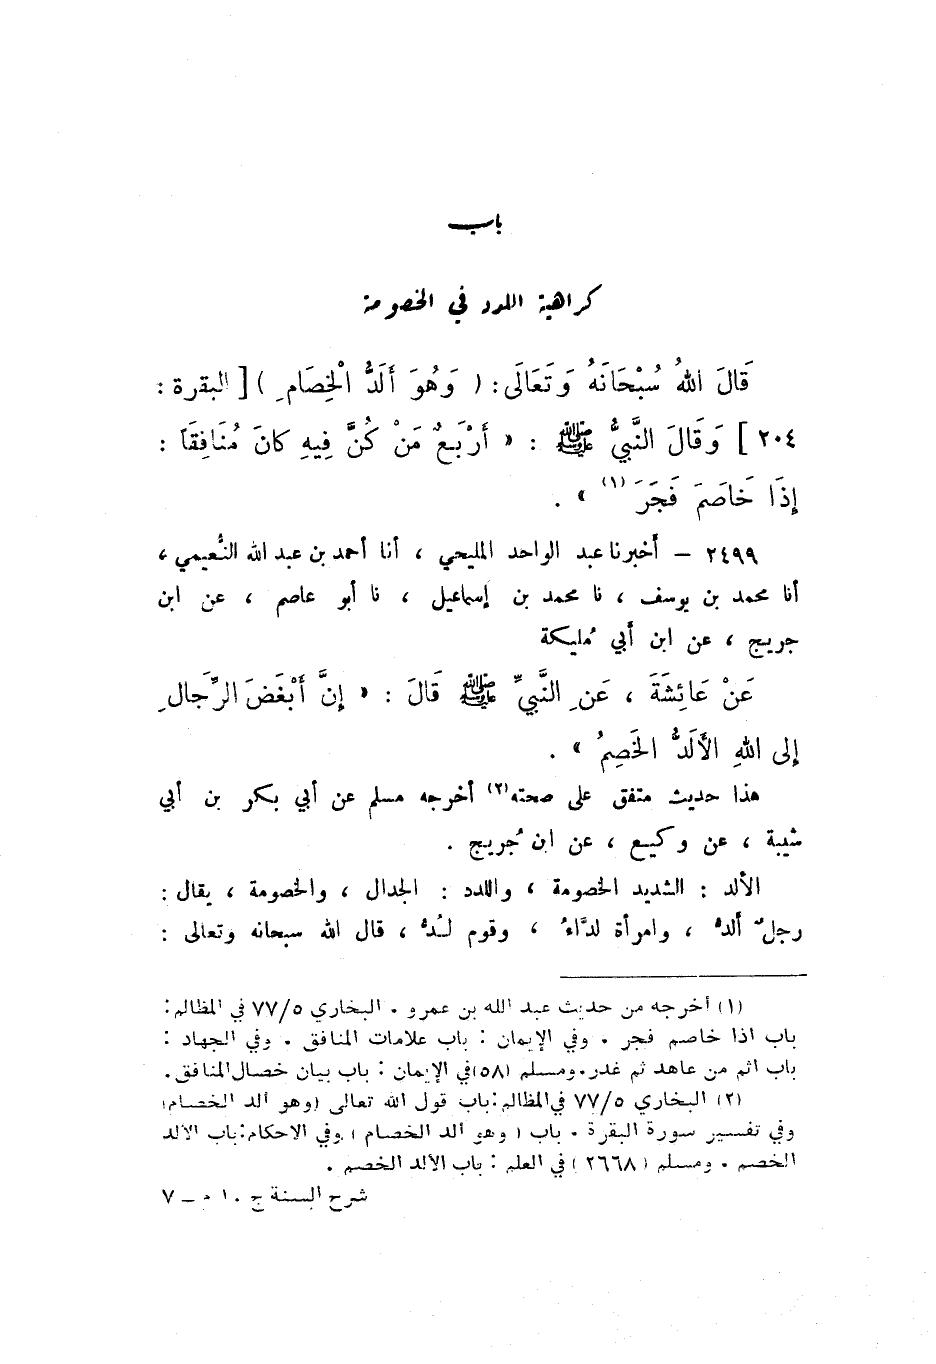 باب
كراهية اللدد في الخصومة
قَالَ اللهُ سُبْحَانَهُ وَتَعَالَى: ( وَهُوَ أَلَدُّ الْخِصَامِ ) [ البقرة :
٢٠٤ ] وَقَالَ النَّبِيُّ ﷺ : « أَرْبَعٌ مَنْ كُنَّ فِيهِ كَانَ مُنَافِقَاً :
إِذَا خَاصَمَ فَجَرَ (١) » .
٢٤٩٩ – أخبرنا عبد الواحد المليحي ، أنا أحمد بن عبد الله النُّعيمي ،
أنا محمد بن يوسف ، نا محمد بن إسماعيل ، نا أبو عاصم ، عن ابن
جريج ، عن ابن أبي مُليكة
عَنْ عَائِشَةَ ، عَنِ النَّبِيِّ ﷺ قَالَ : « إِنَّ أَبْغَضَ الرِّجَالِ
إلى اللهِ الأَلَدُّ الخَصِمُ » .
هذا حديث متفق على صحته (٢) أخرجه مسلم عن أبي بكر بن أبي
شيبة ، عن وكيع ، عن ابن جُريج .
الألد : الشديد الخصومة ، واللدد : الجدال ، والخصومة ، يقال :
رجلٌ ألدُّ ، وامرأة لدَّاءُ ، وقوم لُدٌّ ، قال الله سبحانه وتعالى :
(١) أخرجه من حديث عبد الله بن عمرو . البخاري ٧٧/٥ في المظالم :
باب اذا خاصم فجر . وفي الإيمان : باب علامات المنافق . وفي الجهاد :
باب اثم من عاهد ثم غدر . ومسلم (٥٨) في الإيمان : باب بيان خصال المنافق .
(٢) البخاري ٧٧/٥ في المظالم : باب قول الله تعالى (وهو ألد الخصام)
وفي تفسير سورة البقرة . باب ( وهو ألد الخصام ) وفي الاحكام : باب الألد
الخصم . ومسلم (٢٦٦٨) في العلم : باب الألد الخصم .
شرح السنة ج ١٠ م – ٧